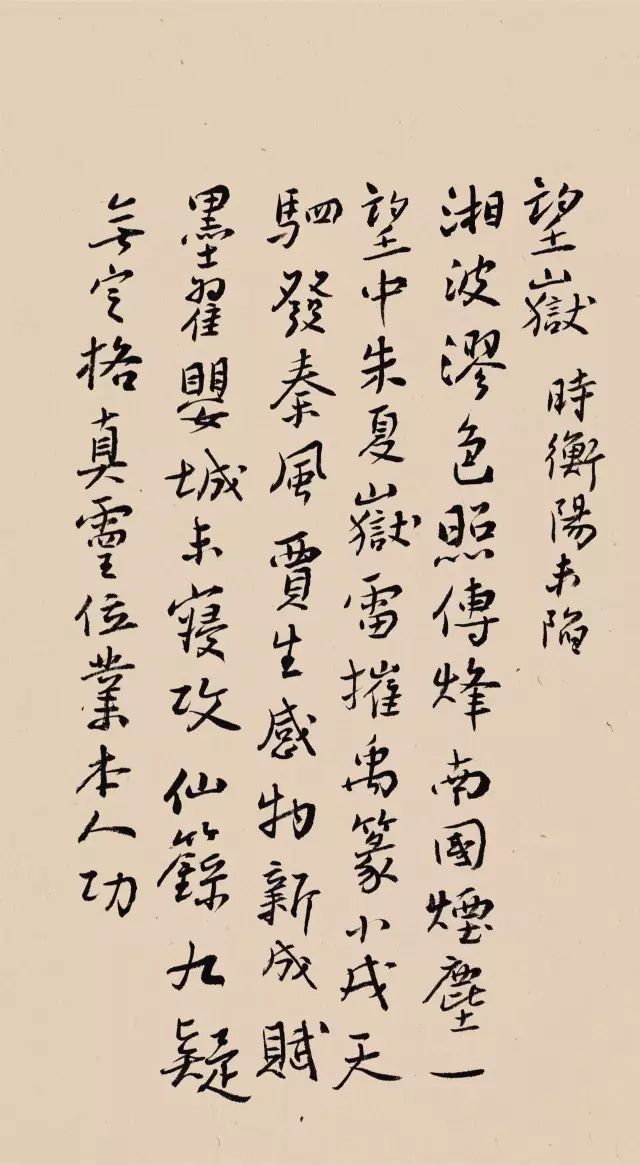 望嶽 時衡陽未陷
湘波漻色照傳烽南國煙塵一
望中朱夏嶽雷摧禹篆小戎天
駟發秦風賈生感物新成賦
墨翟嬰城未寝攻仙籙九疑
無定格真靈位業本人功